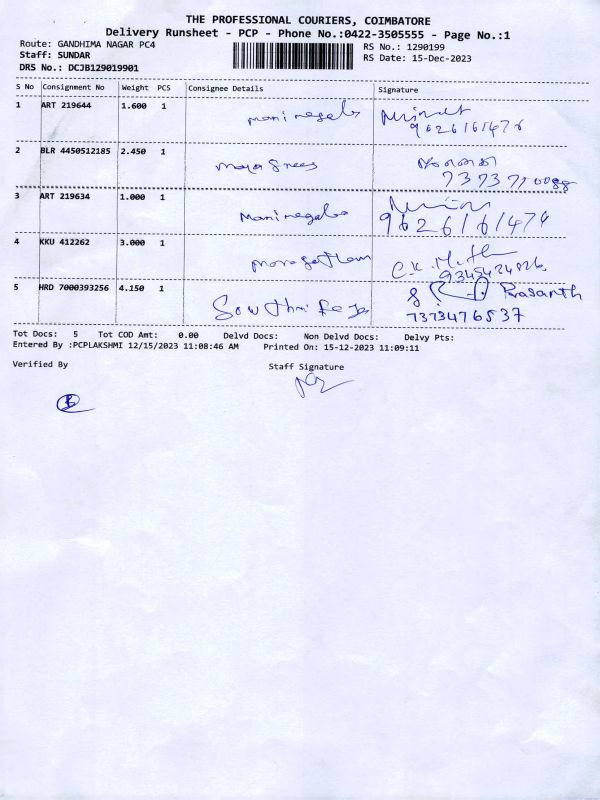 THE PROFESSIONAL COURIERS, COIMBATORE
Delivery Runsheet - PCP - Phone No.:0422-3505555 - Page No.:1
Route: GANDHIMA NAGAR PC4
RS No.: 1290199
Staff: SUNDAR
RS Date: 15-Dec-2023
DRS No.: DCJB129019901
S No Consignment No Weight PCS Consignee Details Signature
1 ART 219644 1.600 1
9626161476
2 BLR 4450512185 2.450 1
3 ART 219634 1.000 1
9626161474
4 KKU 412262 3.000 1
5 HRD 7000393256 4.150 1 Prasanth
7373476537
Tot Docs: 5 Tot COD Amt: 0.00 Delvd Docs: Non Delvd Docs: Delvy Pts:
Entered By :PCPLAKSHMI 12/15/2023 11:08:46 AM Printed On: 15-12-2023 11:09:11
Verified By Staff Signature